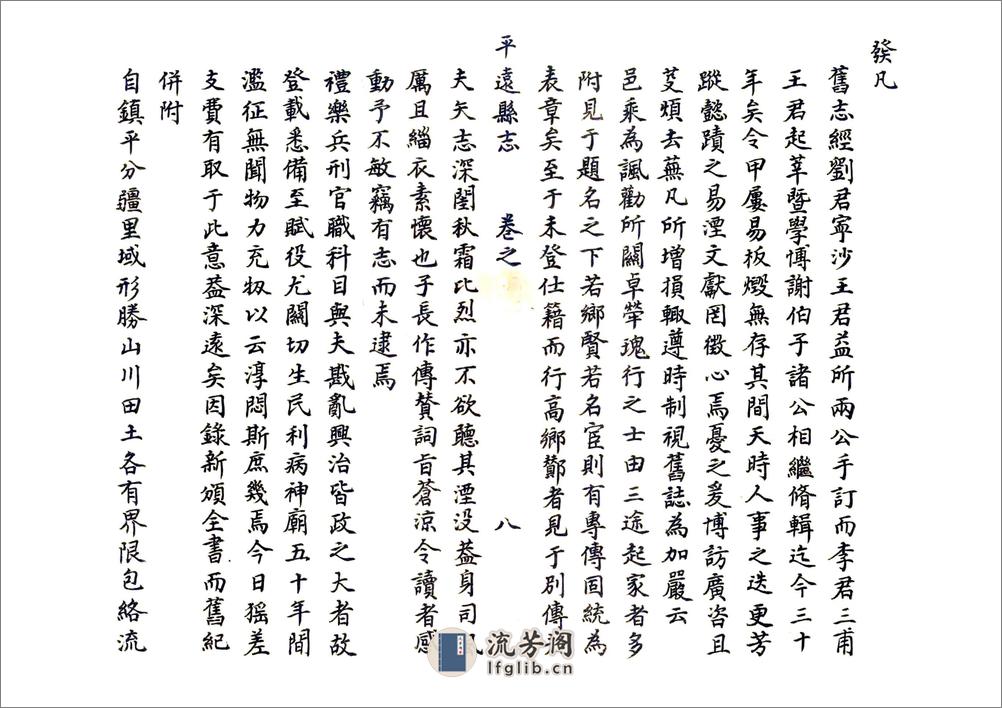 發凡
舊志經劉君寧沙王君益所兩公手訂而李君三甫
王君起莘暨學博謝伯子諸公相繼脩輯迄今三十
年矣令甲屢易板燬無存其間天時人事之迭更芳
蹤懿蹟之易湮文獻罔徵心焉憂之爰博訪廣咨且
芟煩去蕪凡所增損輙遵時制視舊誌為加嚴云
邑乘為諷勸所關卓犖瑰行之士由三途起家者多
附見于題名之下若鄉賢若名宦則有專傳固統為
表章矣至于未登仕籍而行高鄉鄰者見于別傳
平遠縣志 卷之 八
夫矢志深閨秋霜比烈亦不欲聽其湮没葢身司
厲且緇衣素懷也子長作傳贊詞旨蒼涼令讀者感
動予不敏竊有志而未逮焉
禮樂兵刑官職科目與夫戡亂興治皆政之大者故
登載悉備至賦役尤關切生民利病神廟五十年間
濫征無聞物力充牣以云淳悶斯庶幾焉今日猺差
支費有取于此意葢深遠矣因錄新頒全書而舊紀
併附
自鎮平分疆里域形勝山川田土各有界限包絡流
流芳阁
lfglib.cn